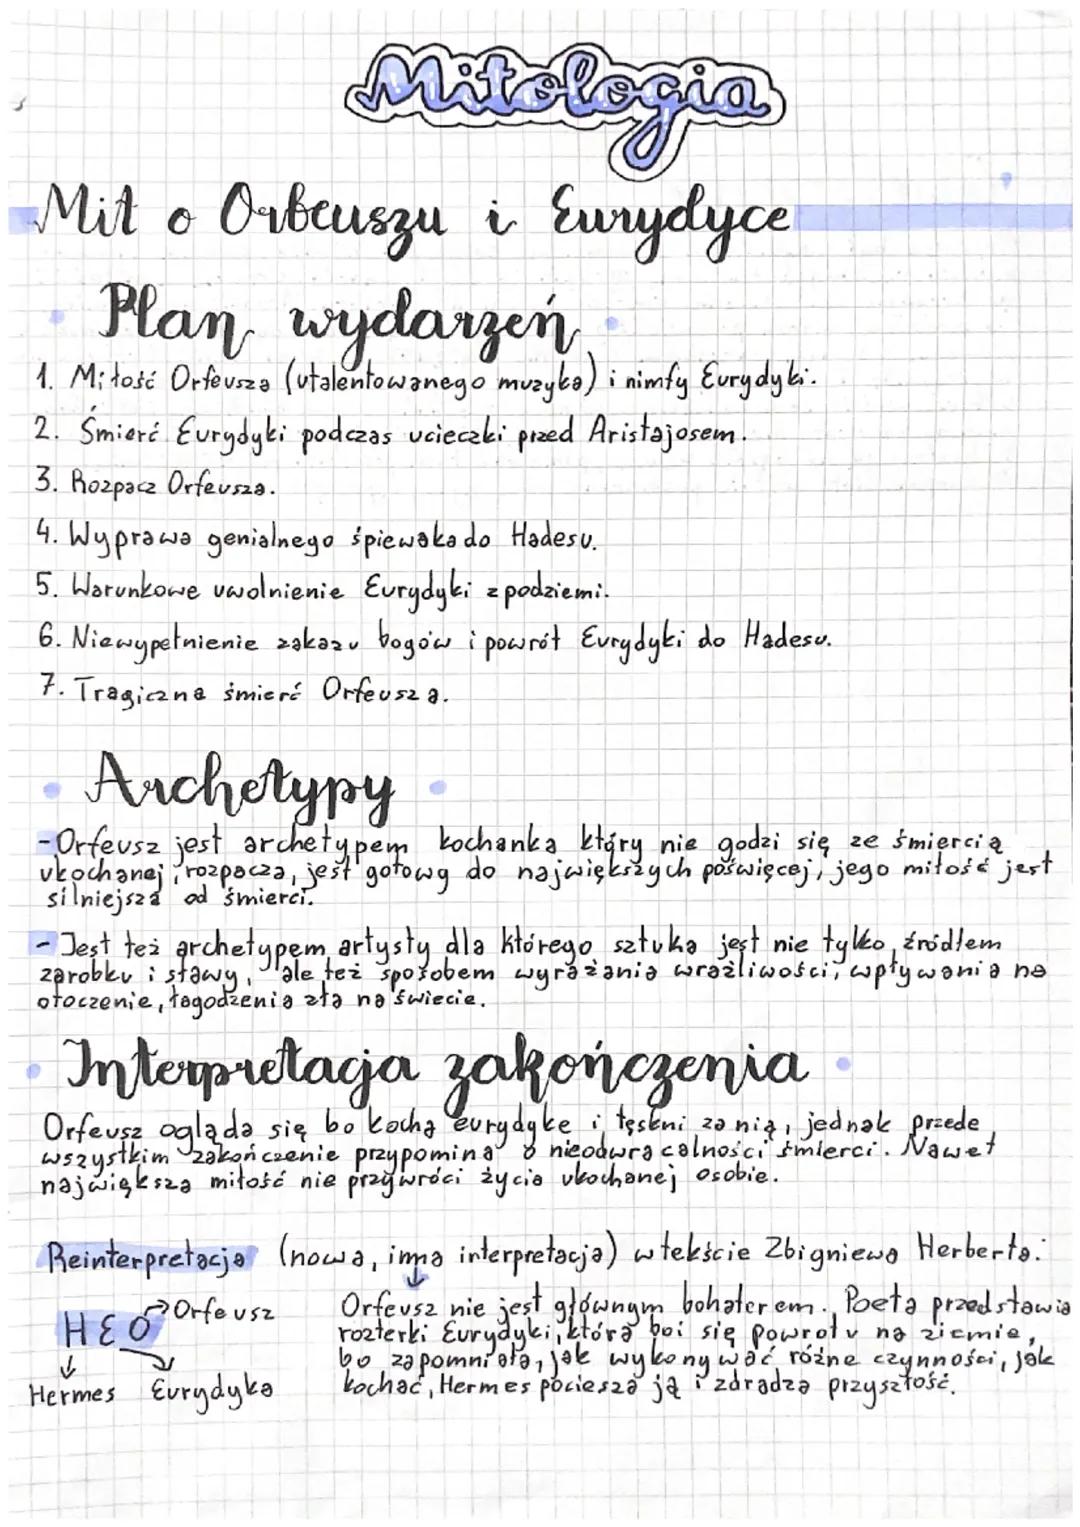 Mitologia
Mit o Orfeuszu i Eurydyce
Plan wydarzeń
1. Miłość Orfeusza (utalentowanego muzyka) i nimfy Eurydyki.
2. Śmierć Eurydyki podczas ucieczki przed Aristajosem.
3. Rozpacz Orfeusza.
4. Wyprawa genialnego śpiewaka do Hadesu.
5. Warunkowe uwolnienie Eurydyki z podziemi.
6. Niewypełnienie zakazu bogów i powrót Eurydyki do Hadesu.
7. Tragiczna śmierć Orfeusza.
Archetypy
- Orfeusz jest archetypem kochanka który nie godzi się ze śmiercią
ukochanej, rozpacza, jest gotowy do największych poświęcej, jego miłość jest
silniejsza od śmierci.
- Jest też archetypem artysty dla którego sztuka jest nie tylko źródłem
zarobku i sławy, ale też sposobem wyrażania wrażliwości, wpływania na
otoczenie, łagodzenia zła na świecie.
Interpretacja zakończenia
Orfeusz ogląda się bo kocha eurydykę i tęskni za nią, jednak przede
wszystkim zakończenie przypomina o nieodwracalności śmierci. Nawet
największa miłość nie przywróci życia ukochanej osobie.
Reinterpretacja (nowa, inna interpretacja) w tekście Zbigniewa Herberta.
HEO
Orfeusz
Hermes Eurydyka
Orfeusz nie jest głównym bohaterem. Poeta przedstawia
rozterki Eurydyki, która boi się powrotu na ziemię,
bo zapomniała, jak wykonywać różne czynności, jak
kochać, Hermes pociesza ją i zdradza przyszłość.